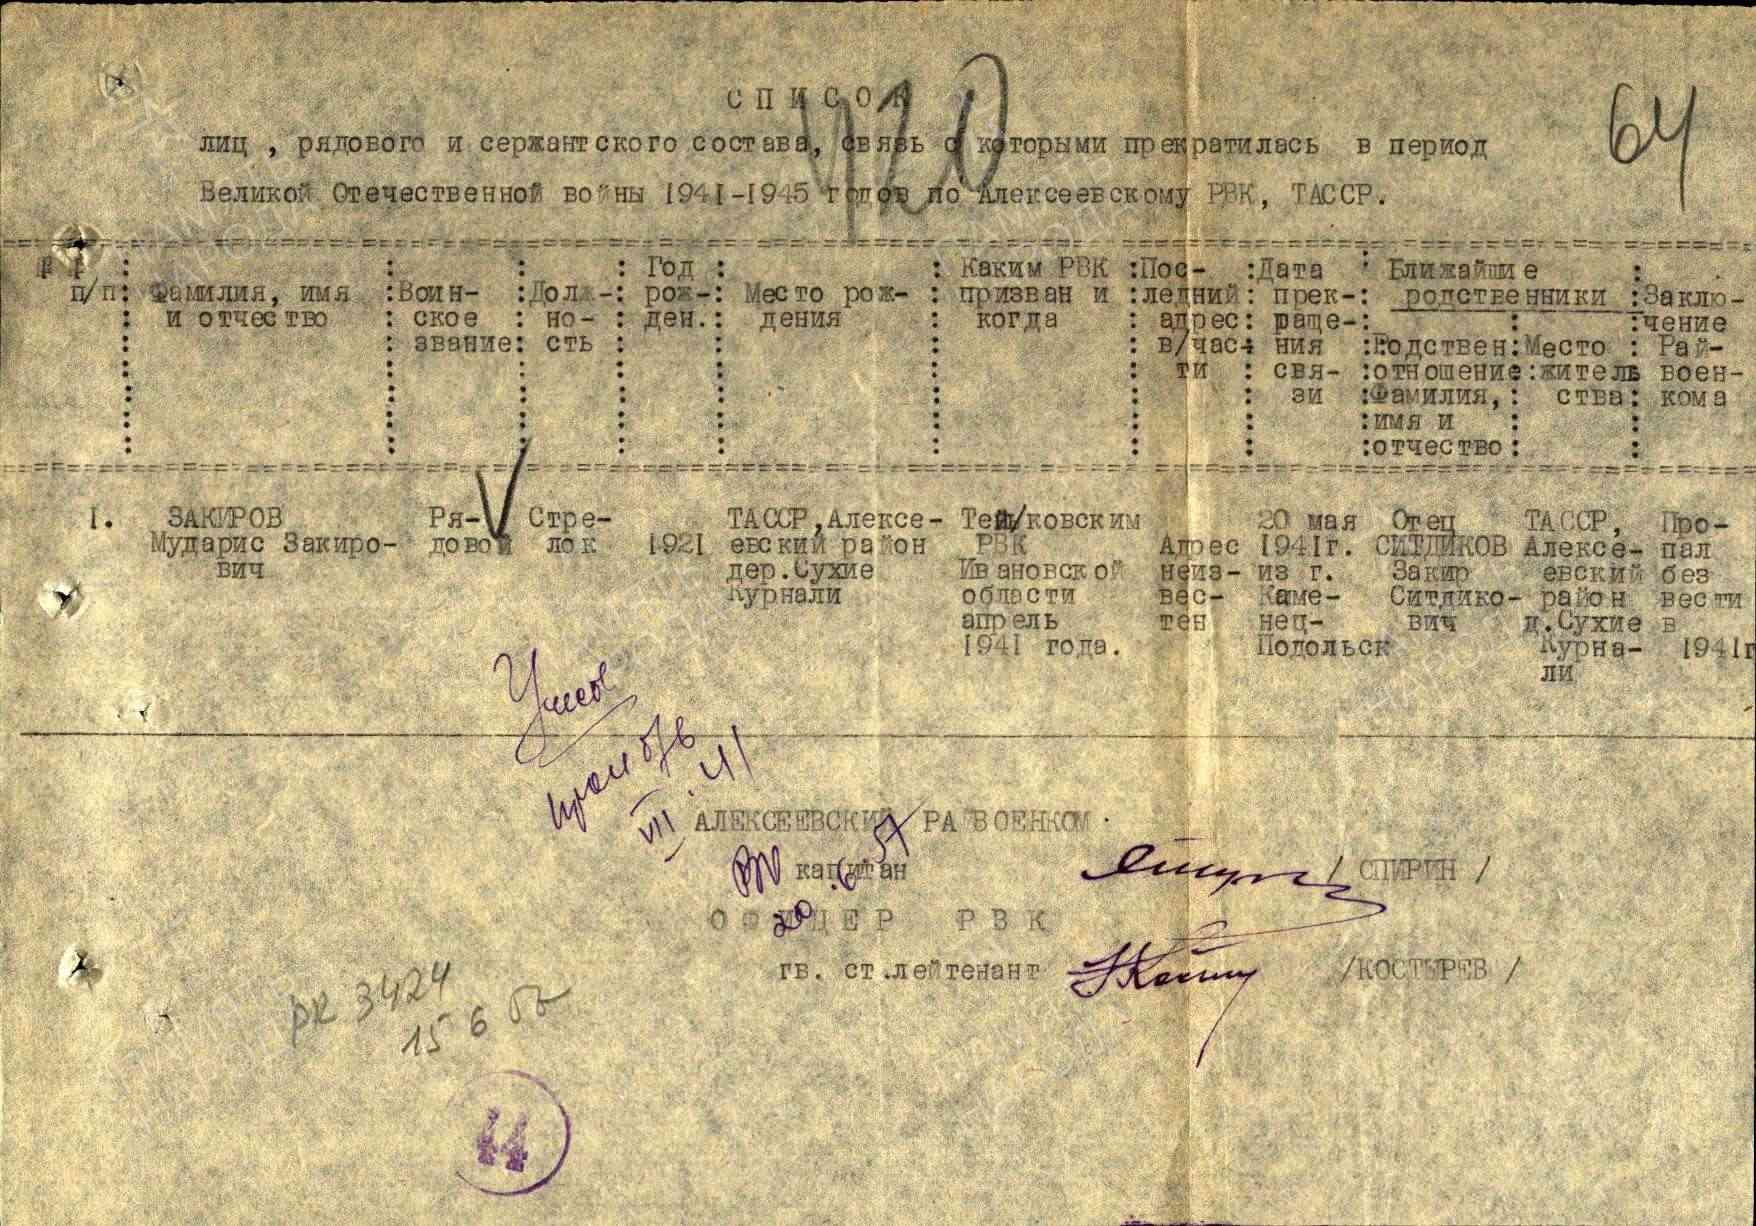 СПИСОК
420
64
лиц , рядового и сержантского состава, связь с которыми прекратилась в период
Великой Отечественной войны 1941-1945 годов по Алексеевскому РВК, ТАССР.
п/п
Фамилия, имя
и отчество
Воин-
ское
звание
Долж-
но-
сть
Год
рож-
ден.
Место рож-
дения
Каким РВК
призван и
когда
Пос-
ледний
адрес
в/час-
ти
Дата
прек-
раще-
ния
свя-
зи
Ближайшие
родственники
Родствен
отношение
Фамилия,
имя и
отчество
Место
житель
ства
Заклю-
чение
Рай-
воен-
кома
1.
ЗАКИРОВ
Мударис Закиро-
вич
Ря-
довой
Стре-
лок
1921
ТАССР,Алексе-
евский район
дер.Сухие
Курнали
Тейковским
РВК
Ивановской
области
апрель
1941 года.
Адрес
неиз-
вес-
тен
20 мая
1941г.
из г.
Каме-
нец-
Подольск
Отец
СИТДИКОВ
Закир
Ситдико-
вич
ТАССР,
Алексе-
евский
район
д.Сухие
Курна-
ли
Про-
пал
без
вести
в
1941г
Учесть
проп б/в
VII.41
АЛЕКСЕЕВСКИЙ РАЙВОЕНКОМ.
капитан / СПИРИН /
20.6.57
ОФИЦЕР РВК
гв. ст.лейтенант /КОСТЫРЕВ /
3424
15 6
44